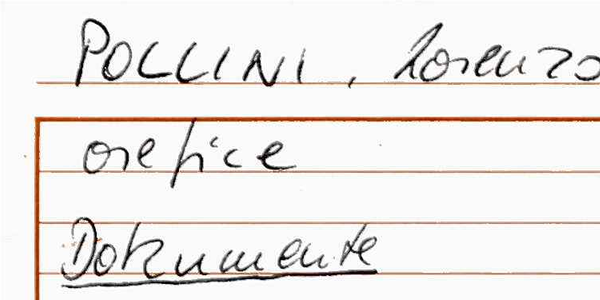 POLLINI, Lorenzo
orefice
Dokumente